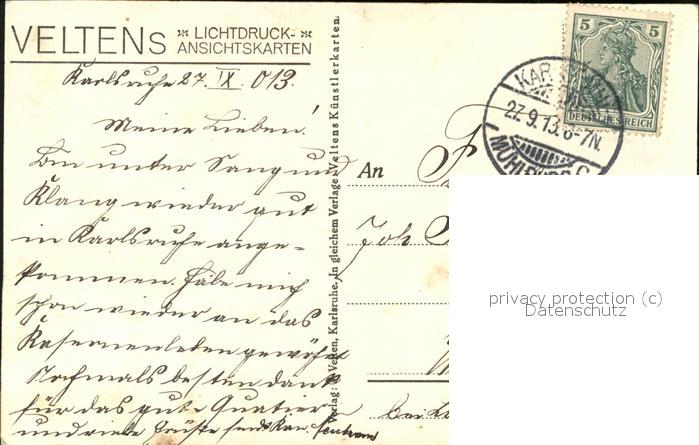 VELTENs LICHTDRUCK-
ANSICHTSKARTEN
Karlsruhe 27. IX. 013.
Meine Lieben!
Bin unter Sang und
Klang wieder gut
in Karlsruhe ange-
kommen. Habe mich
schon wieder an das
Kasernenleben gewöhnt
Nochmals besten Dank
für das gute Quatier
und viele Grüße send
Verlag: Velten, Karlsruhe, In gleichem Verlage Veltens Künstlerkarten.
5 5
DEUTSCHES REICH
KARLSRUHE
27.9.13.6-7N.
MÜHLBURG
An
Joh
privacy protection (c)
Datenschutz